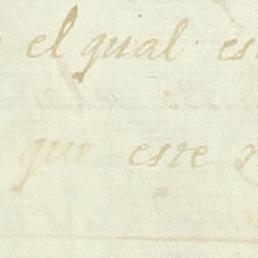 el qual es
que este